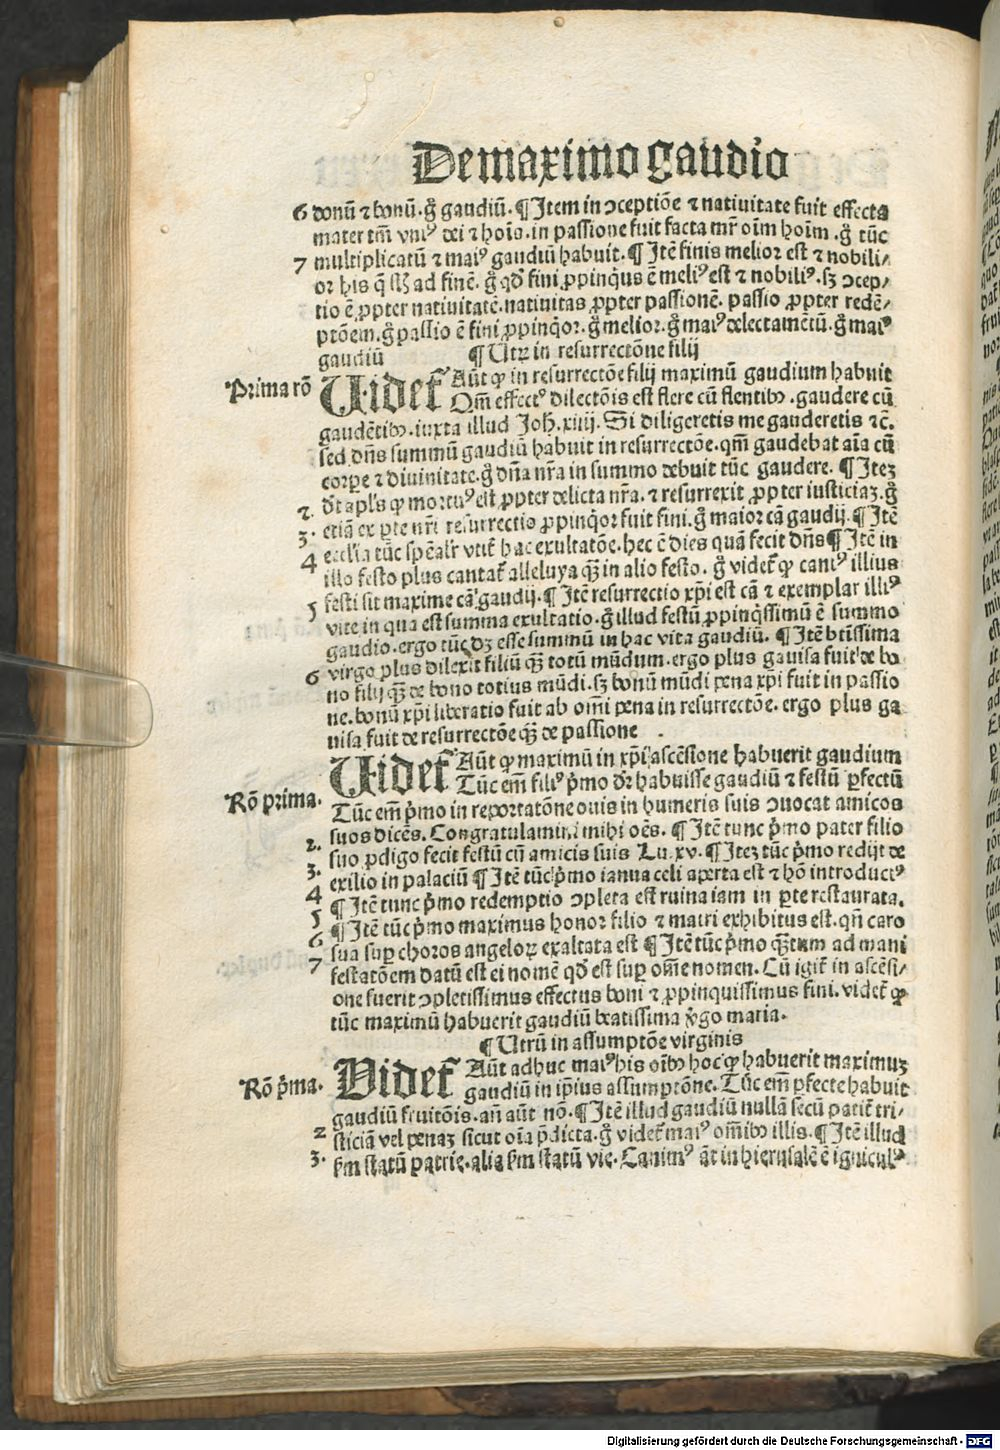 De maximo gaudio
6 donū ⁊ bonū. gͦ gaudiū. ¶ Item in ↄceptiōe ⁊ natiuitate fuit effecta
mater tm̄ vniꝰ dei ⁊ hoīs. in passione fuit facta mr̄ oīm hoīm. gͦ tūc
7 multiplicatū ⁊ maiꝰ gaudiū habuit. ¶ Itē finis melior est ⁊ nobili⸗
or his q̄ sūt ad finē. gͦ qd̓ fini ꝓpinqͥus ē meliꝰ est ⁊ nobiliꝰ. sꝫ ↄcep⸗
tio ē ꝓpter natiuitatē. natiuitas ꝓpter passionē. passio ꝓpter redē⸗
ptōem. gͦ passio ē fini ꝓpinqͥor. gͦ melior. gͦ maiꝰ delectamētū. gͦ maiꝰ
gaudiū ¶ Utꝝ in resurrectōne filij
Prima rō
Uidet᷑ Aūt ꝙ in resurrectōe filij maximū gaudium habuit
Qm̄ effectꝰ dilectōis est flere cū flentibꝰ. gaudere cū
gaudētibꝰ. iuxta illud Joh. xiiij. Si diligeretis me gauderetis ⁊c̄.
sed dn̄s summū gaudiū habuit in resurrectōe. qm̄ gaudebat aīa cū
corpe ⁊ diuinitate. gͦ dn̄a nr̄a in summo debuit tūc gaudere. ¶ Iteꝫ
2. dt̄ apl̓s ꝙ mortuꝰ est ꝓpter delicta nr̄a. ⁊ resurrexit ꝓpter iusticiaꝫ. gͦ
3. etiā ex ꝑte nr̄i resurrectio ꝓpinqͥor fuit fini. gͦ maior cā gaudij. ¶ Itē
eccl̓ia tūc spēalr̄ vtit᷑ hac exultatōe. hec ē dies quā fecit dn̄s ¶ Itē in
4 illo festo plus cantat᷑ alleluya qͣꝫ in alio festo. gͦ videt᷑ ꝙ cantꝰ illius
festi sit maxime cā gaudij. ¶ Itē resurrectio xp̄i est cā ⁊ exemplar illiꝰ
5 vite in qua est summa exultatio. gͦ illud festū ꝓpinqͥssimū ē summo
gaudio. ergo tūc dꝫ esse summū in hac vita gaudiū. ¶ Itē btīssima
6 virgo plus dilexit filiū qͣꝫ totū mūdum. ergo plus gauisa fuit de bo
no filij qͣꝫ de bono totius mūdi. sꝫ bonū mūdi pena xp̄i fuit in passio
ne. bonū xp̄i liberatio fuit ab om̄i pena in resurrectōe. ergo plus ga
uisa fuit de resurrectōe qͣꝫ de passione
Uidet᷑ Aūt ꝙ maximū in xp̄i ascēsione habuerit gaudium
Tūc em̄ filiꝰ pͥmo dr̄ habuisse gaudiū ⁊ festū ꝑfectū
Rō prima.
Tūc em̄ pͥmo in reportatōne ouis in humeris suis ↄuocat amicos
suos dicēs. Congratulamini mihi oēs. ¶ Itē tunc pͥmo pater filio
2. suo ꝓdigo fecit festū cū amicis suis Lu. xv. ¶ Iteꝫ tūc pͥmo redijt de
3. exilio in palaciū ¶ Itē tūc pͥmo ianua celi aperta est ⁊ hō introductꝰ
4 ¶ Itē tunc pͥmo redemptio ↄpleta est ruina iam in ꝑte restaurata.
5 ¶ Itē tūc pͥmo maximus honor filio ⁊ matri exhibitus est. qn̄ caro
6 sua suꝑ choros angeloꝝ exaltata est ¶ Itē tūc pͥmo qͣꝫtum ad mani
7 festatōem datū est ei nomē qd̓ est suꝑ om̄e nomen. Cū igit᷑ in ascēsi⸗
one fuerit ↄpletissimus effectus boni ⁊ ꝓpinquissimus fini. videt᷑ ꝙ
tūc maximū habuerit gaudiū beatissima v̓go maria.
¶ Utrū in assumptōe virginis
Rō pͥma.
Videt᷑ Aūt adhuc maiꝰ his oībꝰ hoc ꝙ habuerit maximuꝫ
gaudiū in ip̄ius assumptōne. Tūc em̄ ꝑfecte habuit
gaudiū fruitōis. an̄ aūt nō. ¶ Itē illud gaudiū nullā secū patit᷑ tri⸗
2 sticiā vel penaꝫ sicut oīa p̄dicta. gͦ videt᷑ maiꝰ om̄ibꝰ illis. ¶ Itē illud
3. ẜm statū patrie. alia ẜm statū vie. Canimꝰ āt in hierusalē ē igniculꝰ
Digitalisierung gefördert durch die Deutsche Forschungsgemeinschaft - DFG